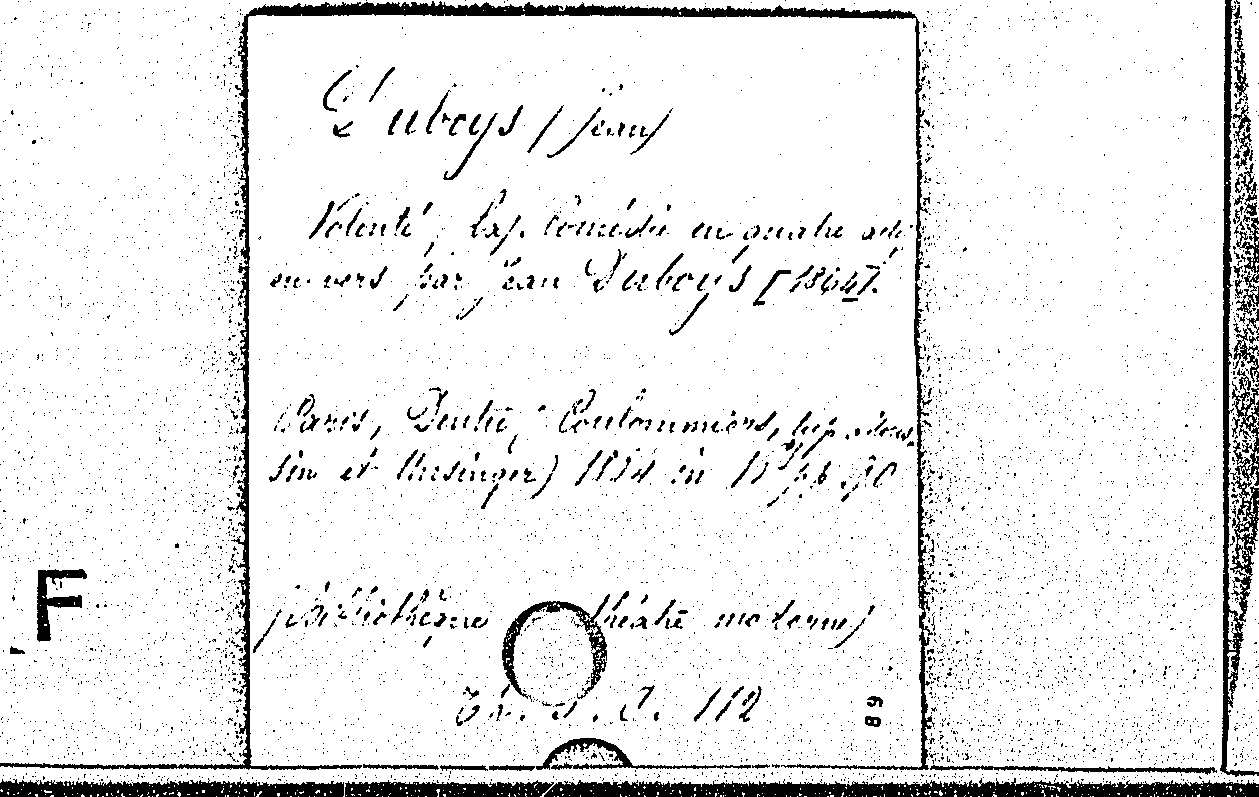 Duboys (Jean)
Volonté, Cap. Comédie en quatre actes
en vers par Jean Duboys [1864].
Paris, Dentu, Coulommiers,
sin et Unsinger) in pp
(Bibliothèque théâtre moderne)
112
89
F